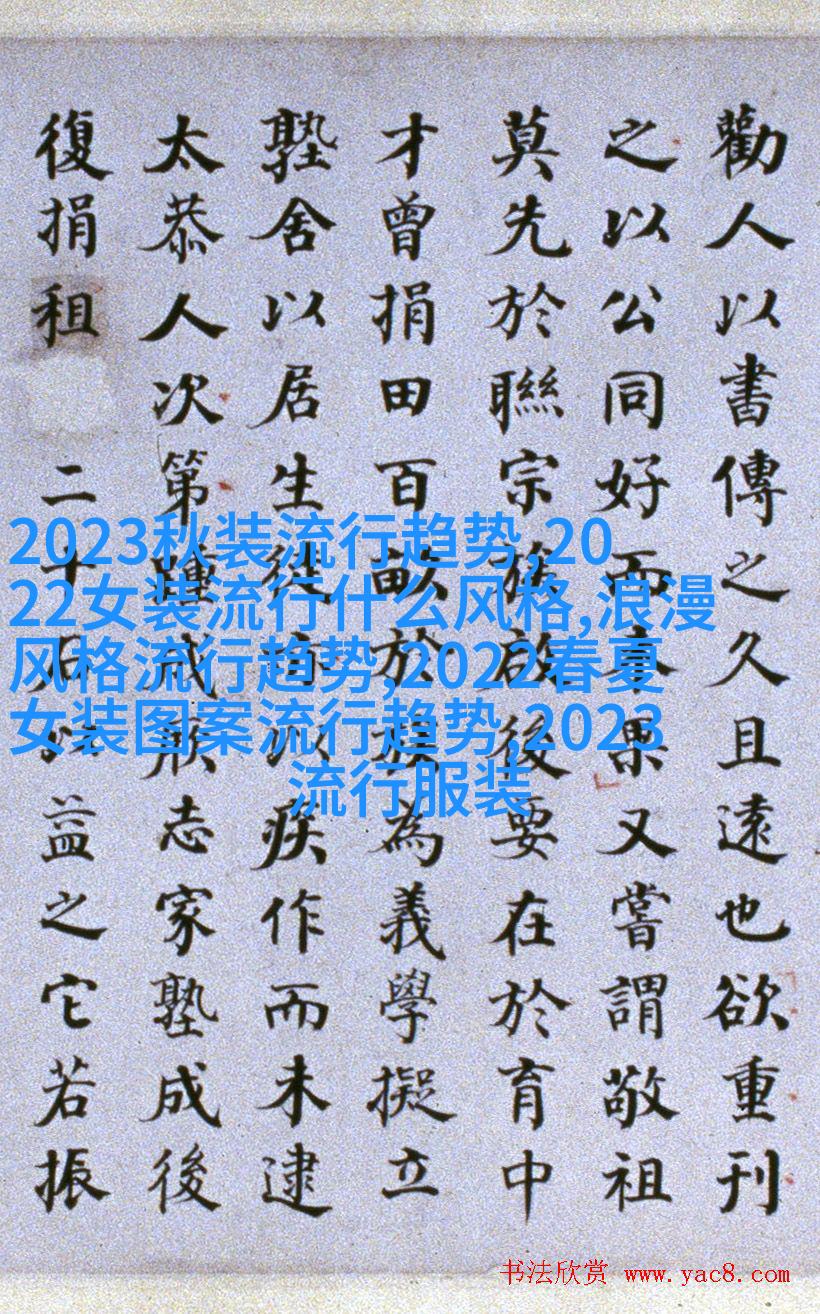 勸人以書傳之久且遠也欲重刊
之以公同好而未果又嘗謂敬祖
莫先於聯宗族啟後要在於育中
才曾捐田百畝於族為義學擬立
塾舍以居生徒以疾作而未逮
太恭人次第踵成厥志家塾成後
復捐租二十石以益之它若振
2023秋装流行趋势,20
22女装流行什么风格,浪漫
风格流行趋势,2022春夏
女装图案流行趋势,2023
流行服装
书法欣赏 www.yac8.com